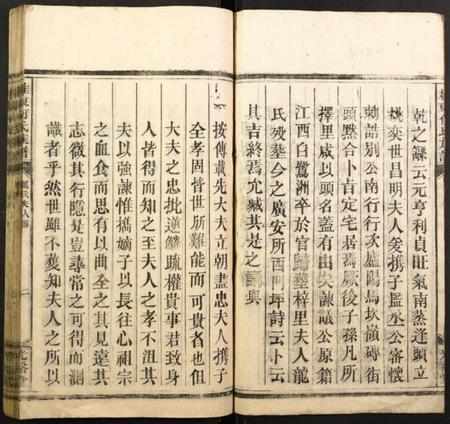 乾之繇云元亨利貞旺氣南蒸逢頭立
桃奕世昌明夫人爰携子監丞公審懷
刺誥別公南行行次廬陽馬坎嶺磚街
頭默合卜吉定宅居焉厥後子孫凡所
擇里咸以頭名蓋有由矣諫議公原籍
江西白鷺洲卒於官歸塟梓里夫人龍
氏歿塟今之廣安所西門坪詩云卜云
其吉終焉允臧其是之謂與
按傳載先大夫立朝盡忠夫人携子
全孝固皆世所難能而可貴者也但
大夫之忠批逆鱗疏權貴事君致身
人皆得而知之至夫人之孝不沮其
夫以強諫惟攜嫡子以長往心祖宗
之血食而思有以曲全之其見遠其
志微其行隱是豈尋常之可得而測
識者乎然世雖不獲知夫人之所以
桂東何氏族譜
二